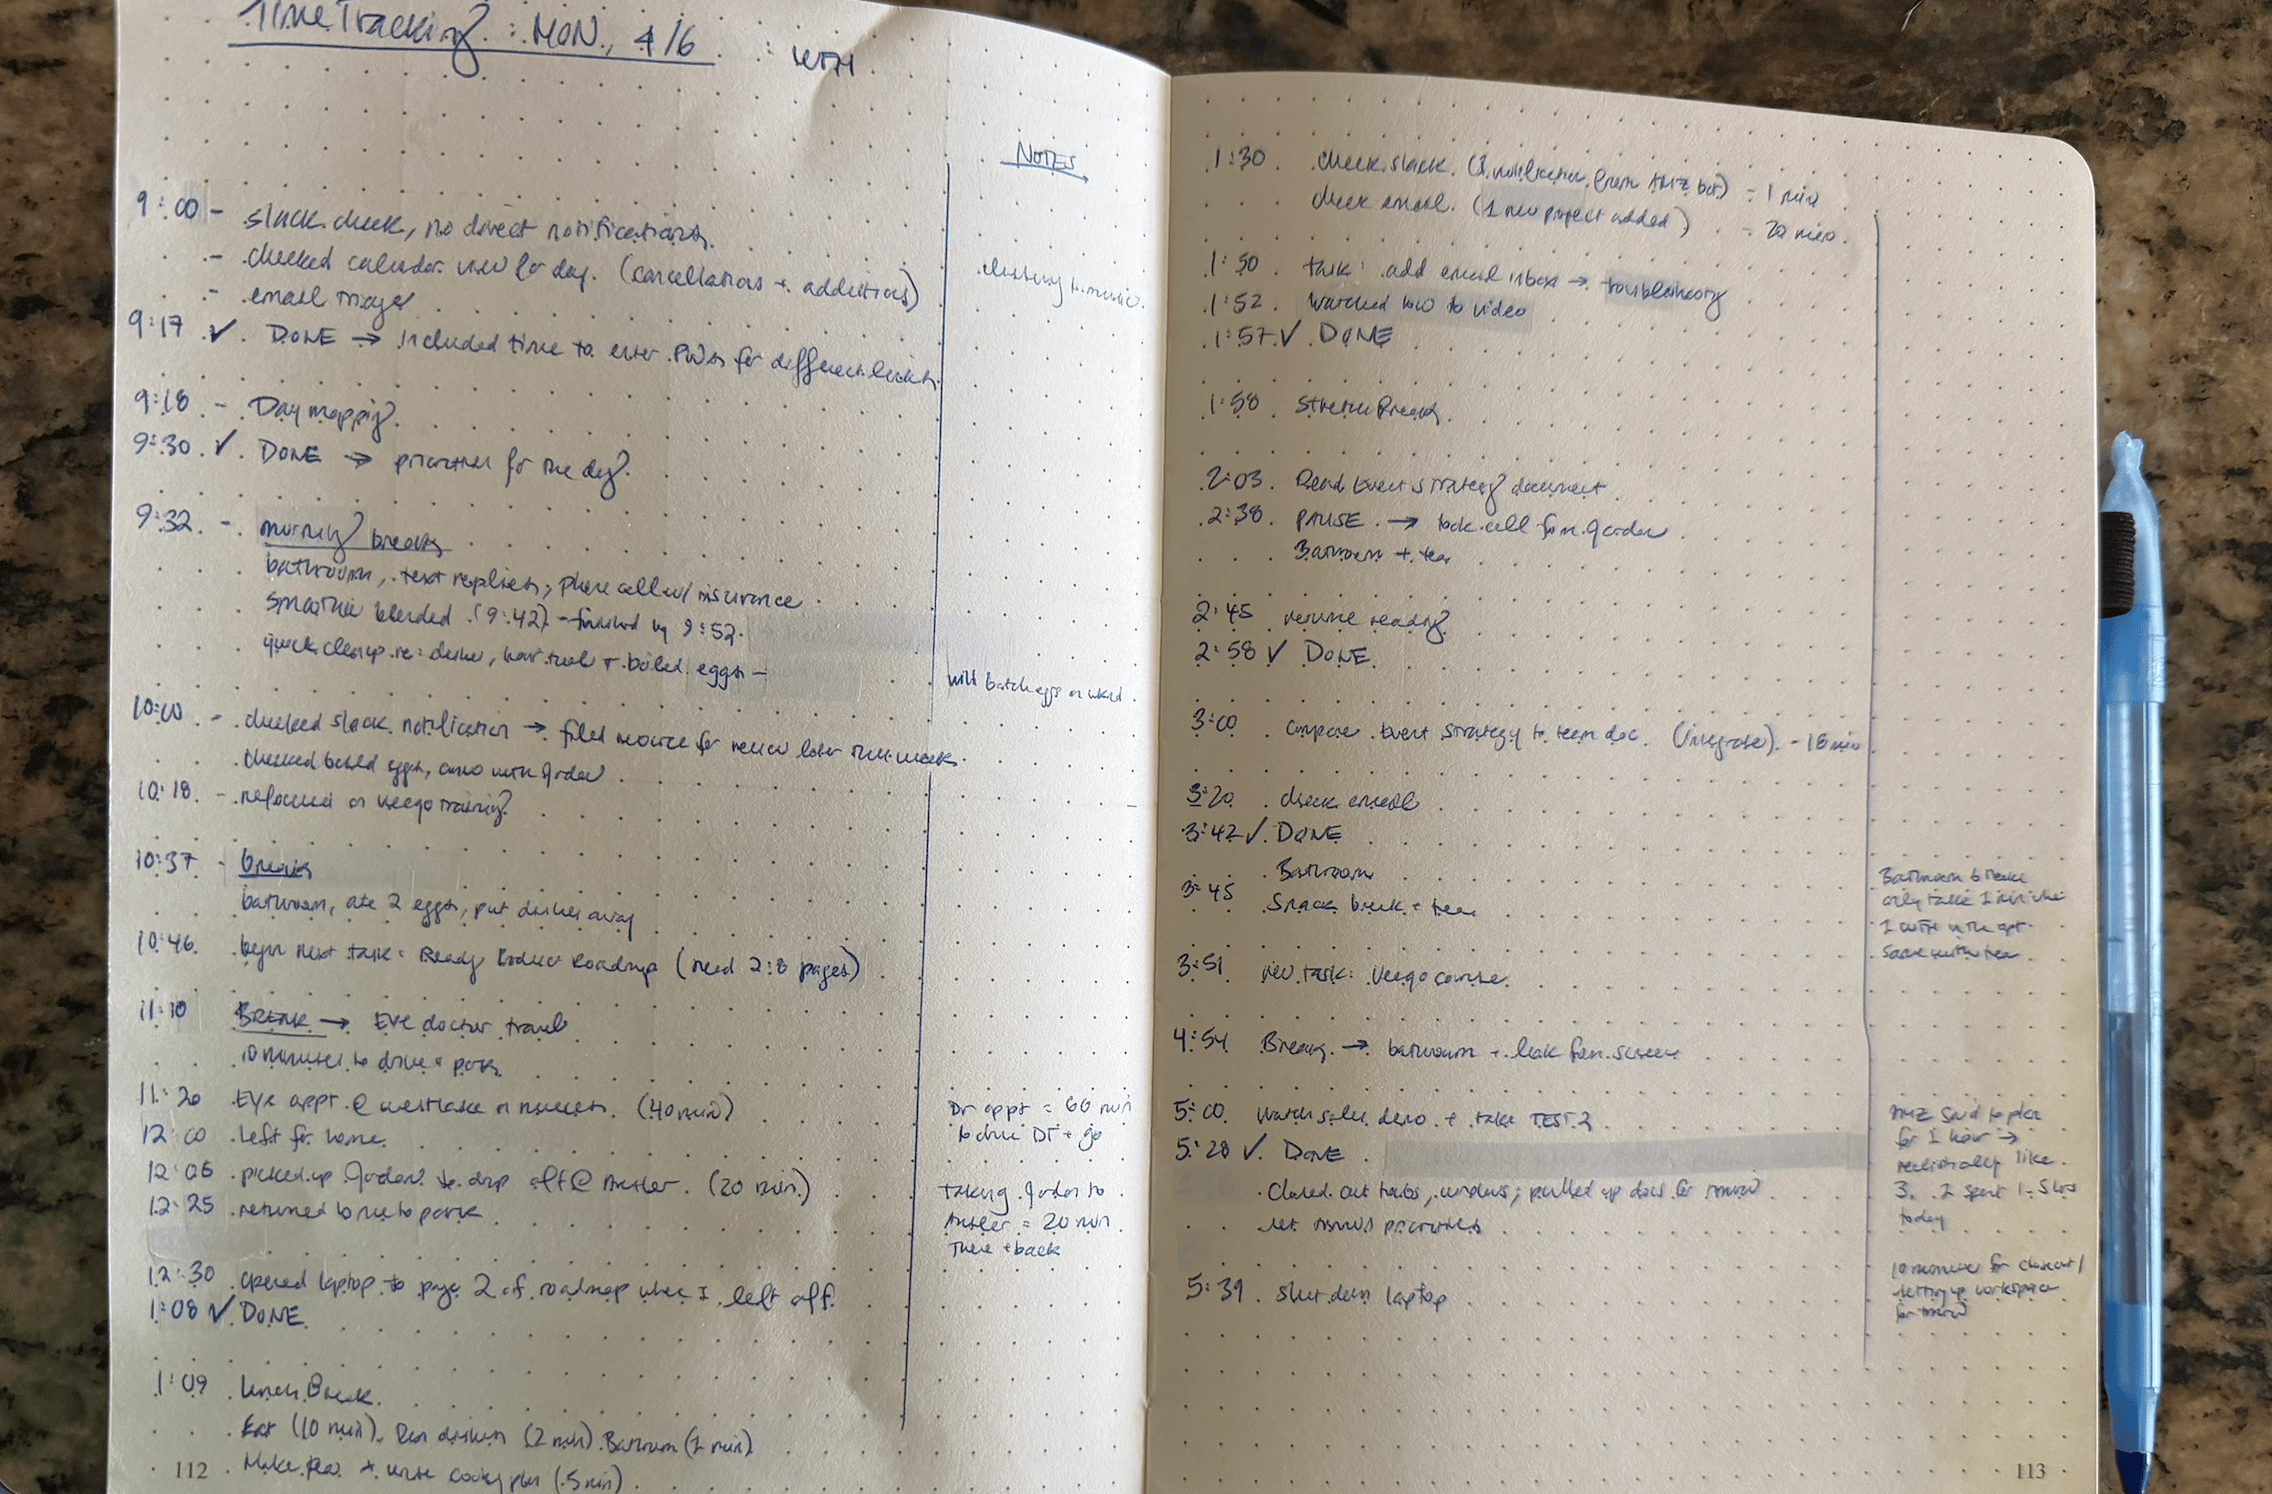 Time Tracking : MON., 4/6 : WFH
NOTES
9:00 - slack check, no direct notifications.
- checked calendar view for day. (cancellations + additions)
- email triage
9:17 ✓ DONE → included time to enter PWs for different
9:18 - Day mapping
9:30 ✓ DONE → priorities for the day
9:32 - morning break
bathroom, text replies, phone call w/ insurance
smoothie blended (9:42) - finished by 9:52
quick clean up re: dishes, + boiled eggs -
10:00 - checked slack notification → filed resource for review later this week
checked boiled eggs, convo with Jordan
10:18 - refocused on Veego training
10:37 - break
bathroom, ate 2 eggs, put dishes away
10:46 begin next task: Ready Product Roadmap (read 2:8 pages)
11:10 Break → Eye doctor travel
10 minutes to drive + park
11:20 Eye appt @ westlake (40 min)
12:00 left for home
12:05 picked up Jordan to drop off @ (20 min.)
12:25 returned home to park
12:30 opened laptop to page 2 of roadmap where I left off.
1:08 ✓ DONE
1:09 lunch Break
Eat (10 min), Run dishes (2 min) Bathroom (1 min)
Make tea + write cooking plan (5 min)
listening to music
will batch eggs on wknd
Dr appt = 60 min
to drive DT + go
Taking Jordan to
= 20 min
there + back
112
1:30 check slack (1 notification from AMZ bot) - 1 min
check email (1 new project added) - 20 min.
1:50 task: add email inbox → troubleshooting
1:52 watched how to video
1:57 ✓ DONE
1:58 stretch Break
2:03 Read Event Strategy document
2:38 PAUSE → took call from Jordan
Bathroom + tea
2:45 resume reading
2:58 ✓ DONE
3:00 Compare Event Strategy to team doc (integrate) - 18 min
3:20 check email
3:42 ✓ DONE
Bathroom
3:45 Snack break + tea
3:51 new task: Veego course
4:54 Break → bathroom + break from screen
5:00 watch sales demo + take TEST 2
5:28 ✓ DONE
Closed out tabs, windows; pulled up docs for tmrw
set tmrw's priorities
5:39 shut down laptop
Bathroom breaks
only take 1 min when
I WFH in the apt.
Same with tea
AMZ said to plan
for 1 hour →
realistically like
3. I spent 1.5 hrs
today
10 minutes for closeout/
setting up workspace
for tmrw
113